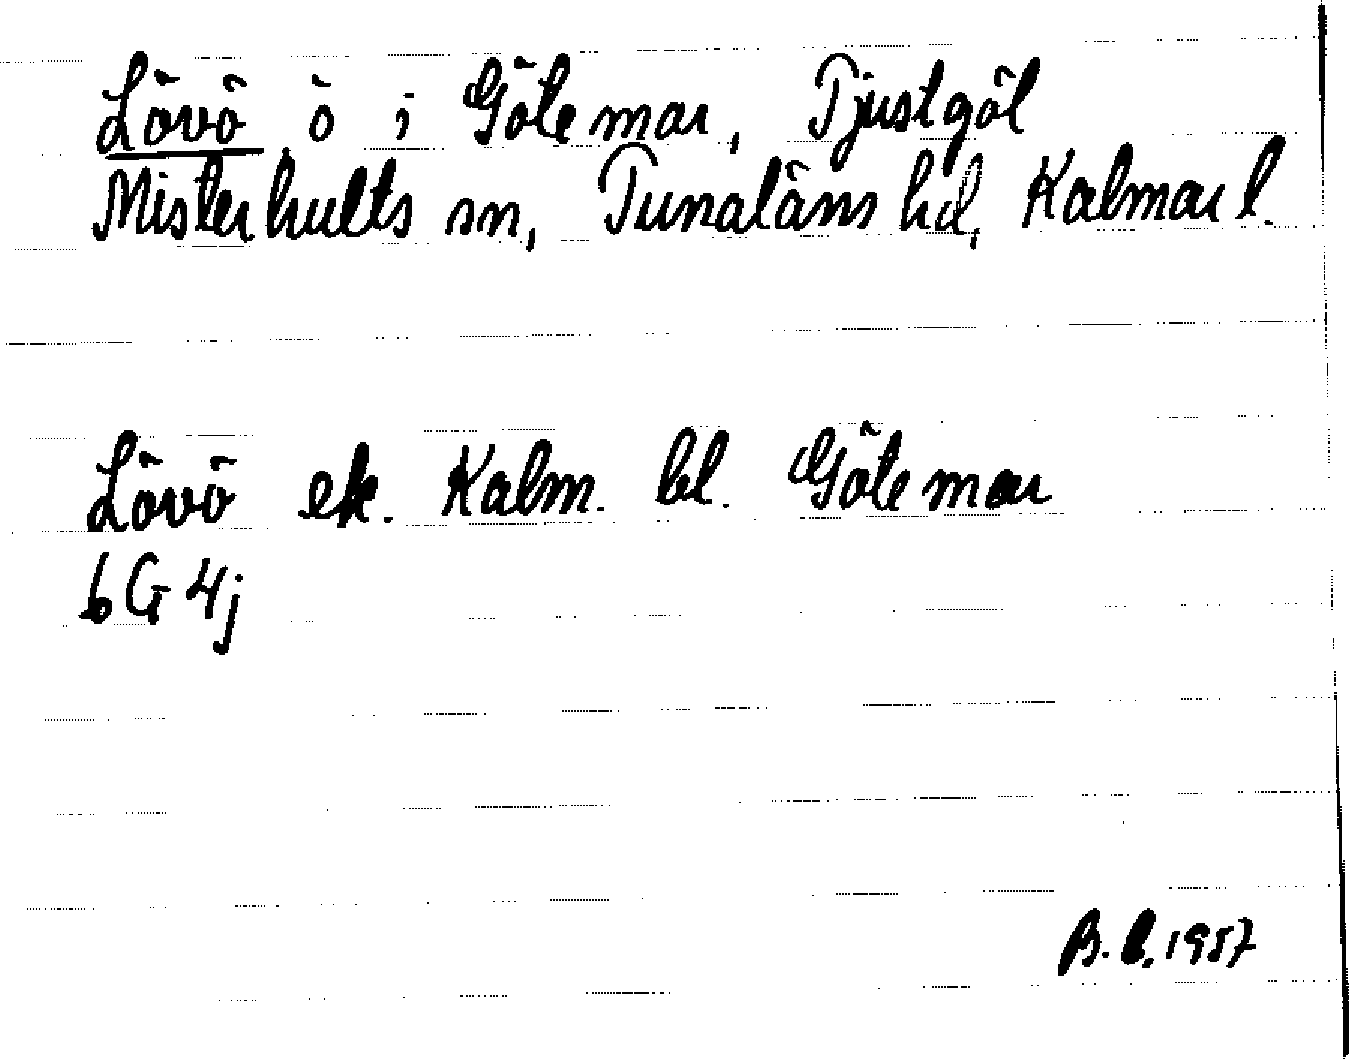 Lövö ö i Götemar, Tjustgöl
Misterhults sn, Tunaläns hd, Kalmar l.
Lövö ek. Kalm. bl. Götemar
6G 4j
B.l. 1957